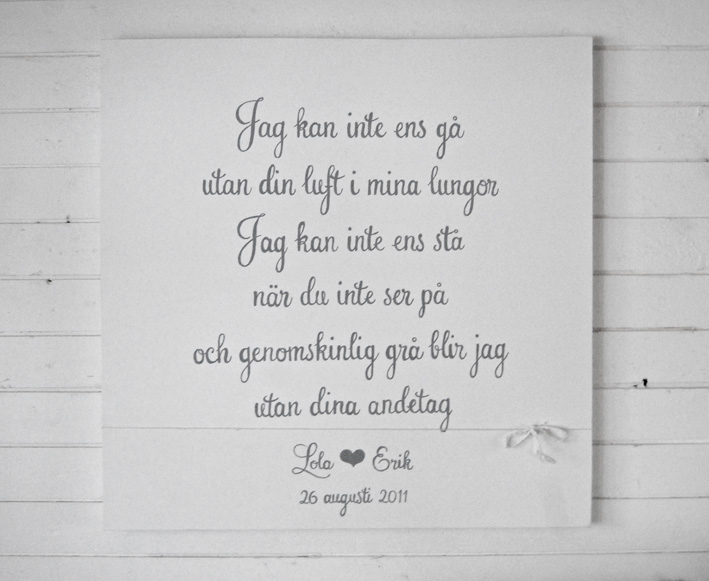 Jag kan inte ens gå
utan din luft i mina lungor
Jag kan inte ens stå
när du inte ser på
och genomskinlig grå blir jag
utan dina andetag
Lola ♥ Erik
26 augusti 2011